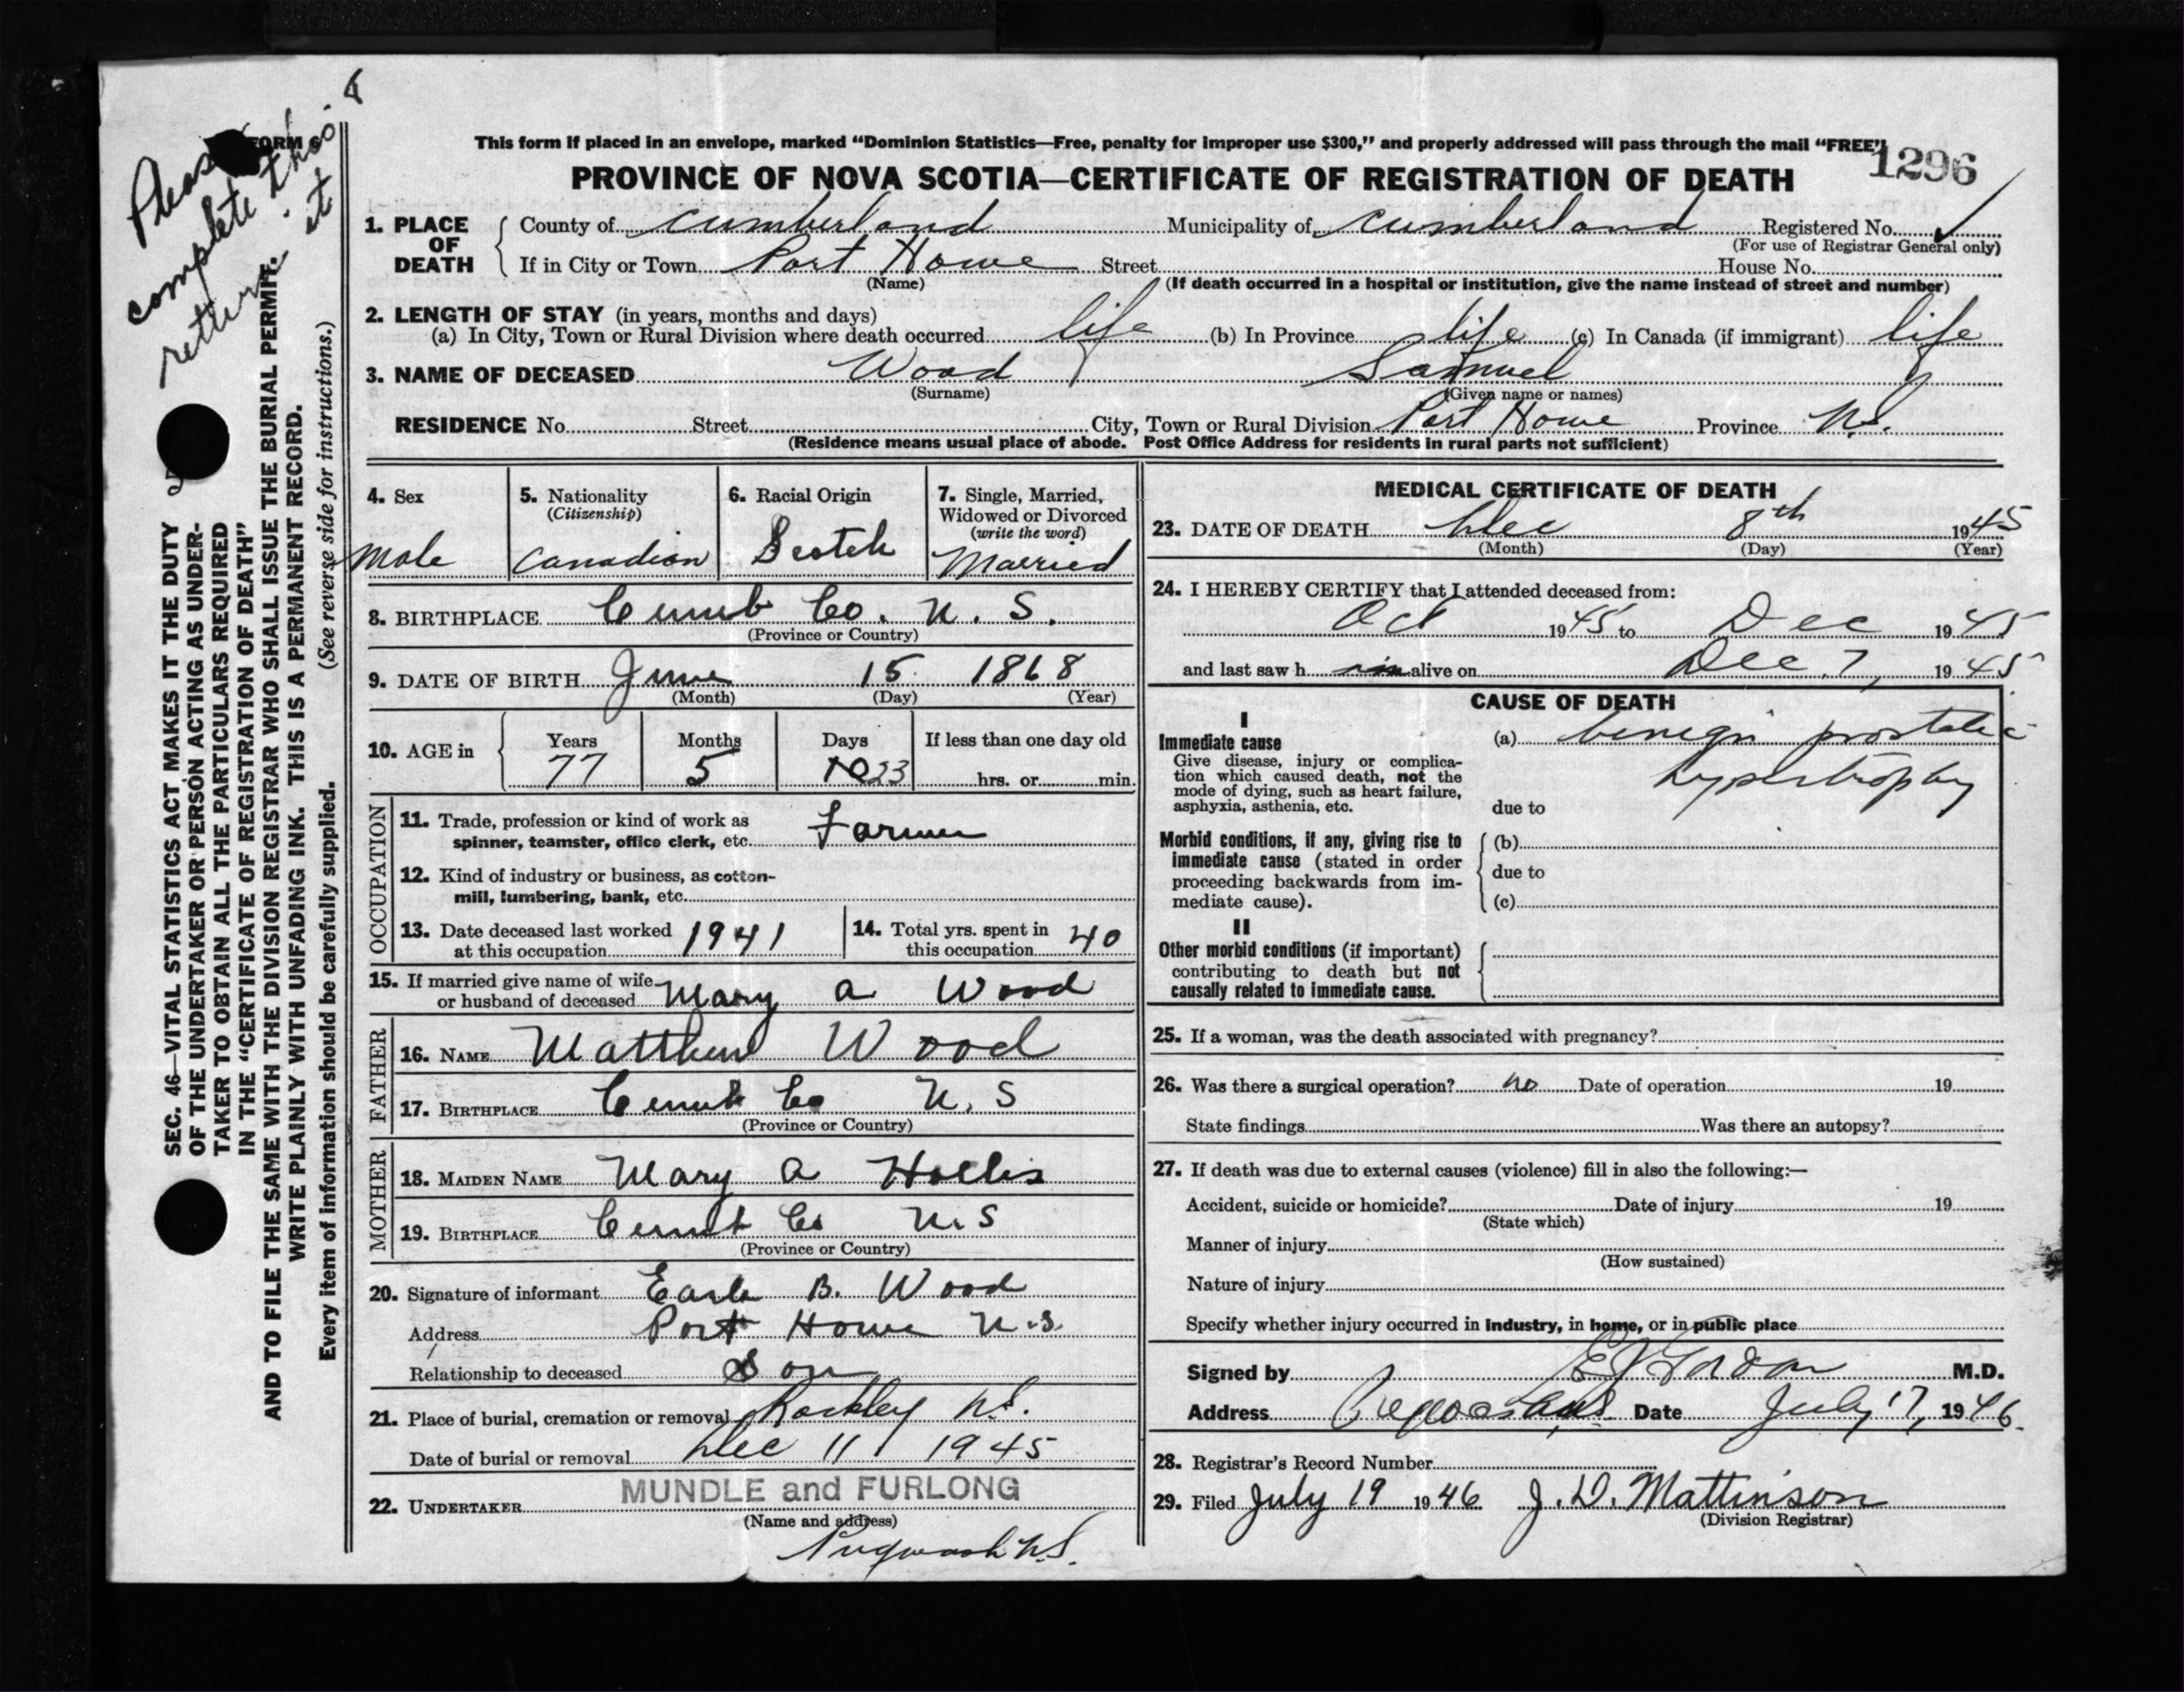 Please
complete this &
return it
FORM 6
This form if placed in an envelope, marked “Dominion Statistics—Free, penalty for improper use $300,” and properly addressed will pass through the mail “FREE”
1296
PROVINCE OF NOVA SCOTIA—CERTIFICATE OF REGISTRATION OF DEATH
1. PLACE OF DEATH
County of Cumberland Municipality of Cumberland Registered No. ✓
(For use of Registrar General only)
If in City or Town Port Howe Street House No.
(Name) (If death occurred in a hospital or institution, give the name instead of street and number)
2. LENGTH OF STAY (in years, months and days)
(a) In City, Town or Rural Division where death occurred life (b) In Province life (c) In Canada (if immigrant) life
3. NAME OF DECEASED Wood Samuel
(Surname) (Given name or names)
RESIDENCE No. Street City, Town or Rural Division Port Howe Province N.S.
(Residence means usual place of abode. Post Office Address for residents in rural parts not sufficient)
SEC. 46—VITAL STATISTICS ACT MAKES IT THE DUTY
OF THE UNDERTAKER OR PERSON ACTING AS UNDER-
TAKER TO OBTAIN ALL THE PARTICULARS REQUIRED
IN THE “CERTIFICATE OF REGISTRATION OF DEATH”
AND TO FILE THE SAME WITH THE DIVISION REGISTRAR WHO SHALL ISSUE THE BURIAL PERMIT.
WRITE PLAINLY WITH UNFADING INK. THIS IS A PERMANENT RECORD.
Every item of information should be carefully supplied. (See reverse side for instructions.)
4. Sex
Male
5. Nationality
(Citizenship)
Canadian
6. Racial Origin
Scotch
7. Single, Married,
Widowed or Divorced
(write the word)
Married
8. BIRTHPLACE Cumb Co. N. S.
(Province or Country)
9. DATE OF BIRTH June 15 1868
(Month) (Day) (Year)
10. AGE in
Years Months Days If less than one day old
77 5 23 hrs. or min.
OCCUPATION
11. Trade, profession or kind of work as
spinner, teamster, office clerk, etc. Farmer
12. Kind of industry or business, as cotton-
mill, lumbering, bank, etc.
13. Date deceased last worked
at this occupation 1941
14. Total yrs. spent in
this occupation 40
15. If married give name of wife
or husband of deceased Mary A Wood
FATHER
16. NAME Matthew Wood
17. BIRTHPLACE Cumb Co N. S
(Province or Country)
MOTHER
18. MAIDEN NAME Mary A Hollis
19. BIRTHPLACE Cumb Co N. S
(Province or Country)
20. Signature of informant Earle B. Wood
Address Port Howe N.S.
Relationship to deceased Son
21. Place of burial, cremation or removal Rockley N.S.
Date of burial or removal Dec 11 1945
22. UNDERTAKER MUNDLE and FURLONG
(Name and address)
Pugwash N.S.
MEDICAL CERTIFICATE OF DEATH
23. DATE OF DEATH Dec 8th 1945
(Month) (Day) (Year)
24. I HEREBY CERTIFY that I attended deceased from:
Oct 1945 to Dec 1945
and last saw h im alive on Dec. 7, 1945
CAUSE OF DEATH
I
Immediate cause
Give disease, injury or complica-
tion which caused death, not the
mode of dying, such as heart failure,
asphyxia, asthenia, etc.
(a) benign prostatic
hypertrophy
due to
Morbid conditions, if any, giving rise to
immediate cause (stated in order
proceeding backwards from im-
mediate cause).
(b)
due to
(c)
II
Other morbid conditions (if important)
contributing to death but not
causally related to immediate cause.
25. If a woman, was the death associated with pregnancy?
26. Was there a surgical operation? no Date of operation 19
State findings Was there an autopsy?
27. If death was due to external causes (violence) fill in also the following:—
Accident, suicide or homicide? Date of injury 19
(State which)
Manner of injury
(How sustained)
Nature of injury
Specify whether injury occurred in industry, in home, or in public place
Signed by E J Gordon M.D.
Address Date July 17, 1946.
28. Registrar's Record Number
29. Filed July 19 1946 J. D. Mattinson
(Division Registrar)